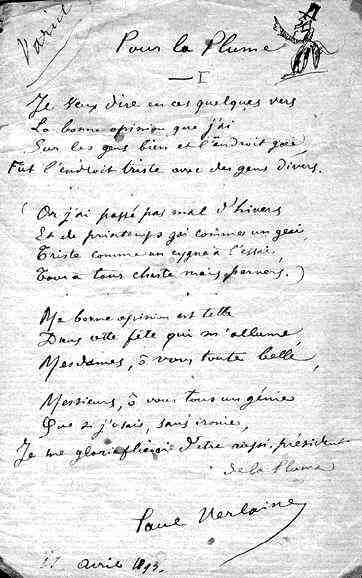 Varia
Pour la Plume
I
Je veux dire en ces quelques vers
La bonne opinion que j'ai
Sur les gens bien et l'endroit gai,
Fut l'endroit triste avec des gens divers.
(Or j'ai passé pas mal d'hivers
Et de printemps gai comme un geai
Triste comme un cygne à l'essai
Tour à tour chaste mais pervers.)
Ma bonne opinion est telle
Dans cette fête qui m'allume
Mesdames, ô vous toute belle,
Messieurs, ô vous tous un génie
Que si j'osais, sans ironie,
Je me d'être président
de la Plume
Paul Verlaine
avril